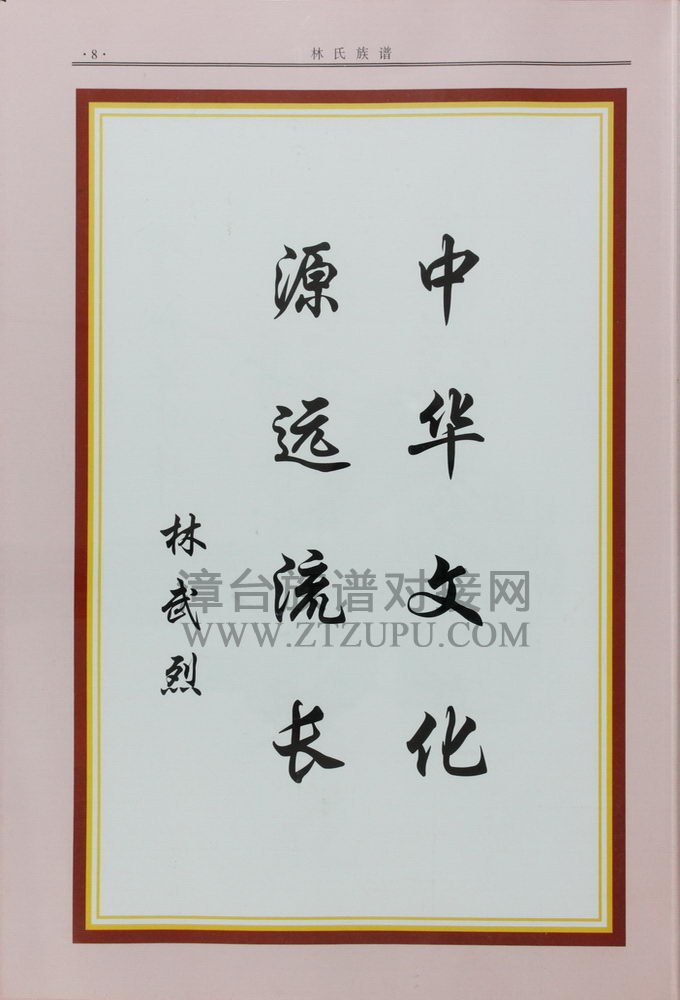 ·8·
林氏族谱
中华文化
源远流长
林武烈
漳台族谱对接网
WWW.ZTZUPU.COM